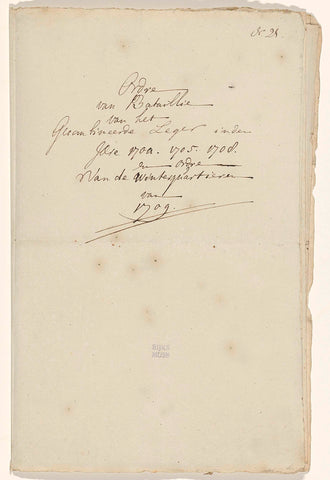 Ordre
van Bataillie
van het
Gecombineerde Leger inden
Jare 1702. 1705. 1708.
en ordre
Van de Winterquartieren
van
1709.
RIJKS
MUSEUM